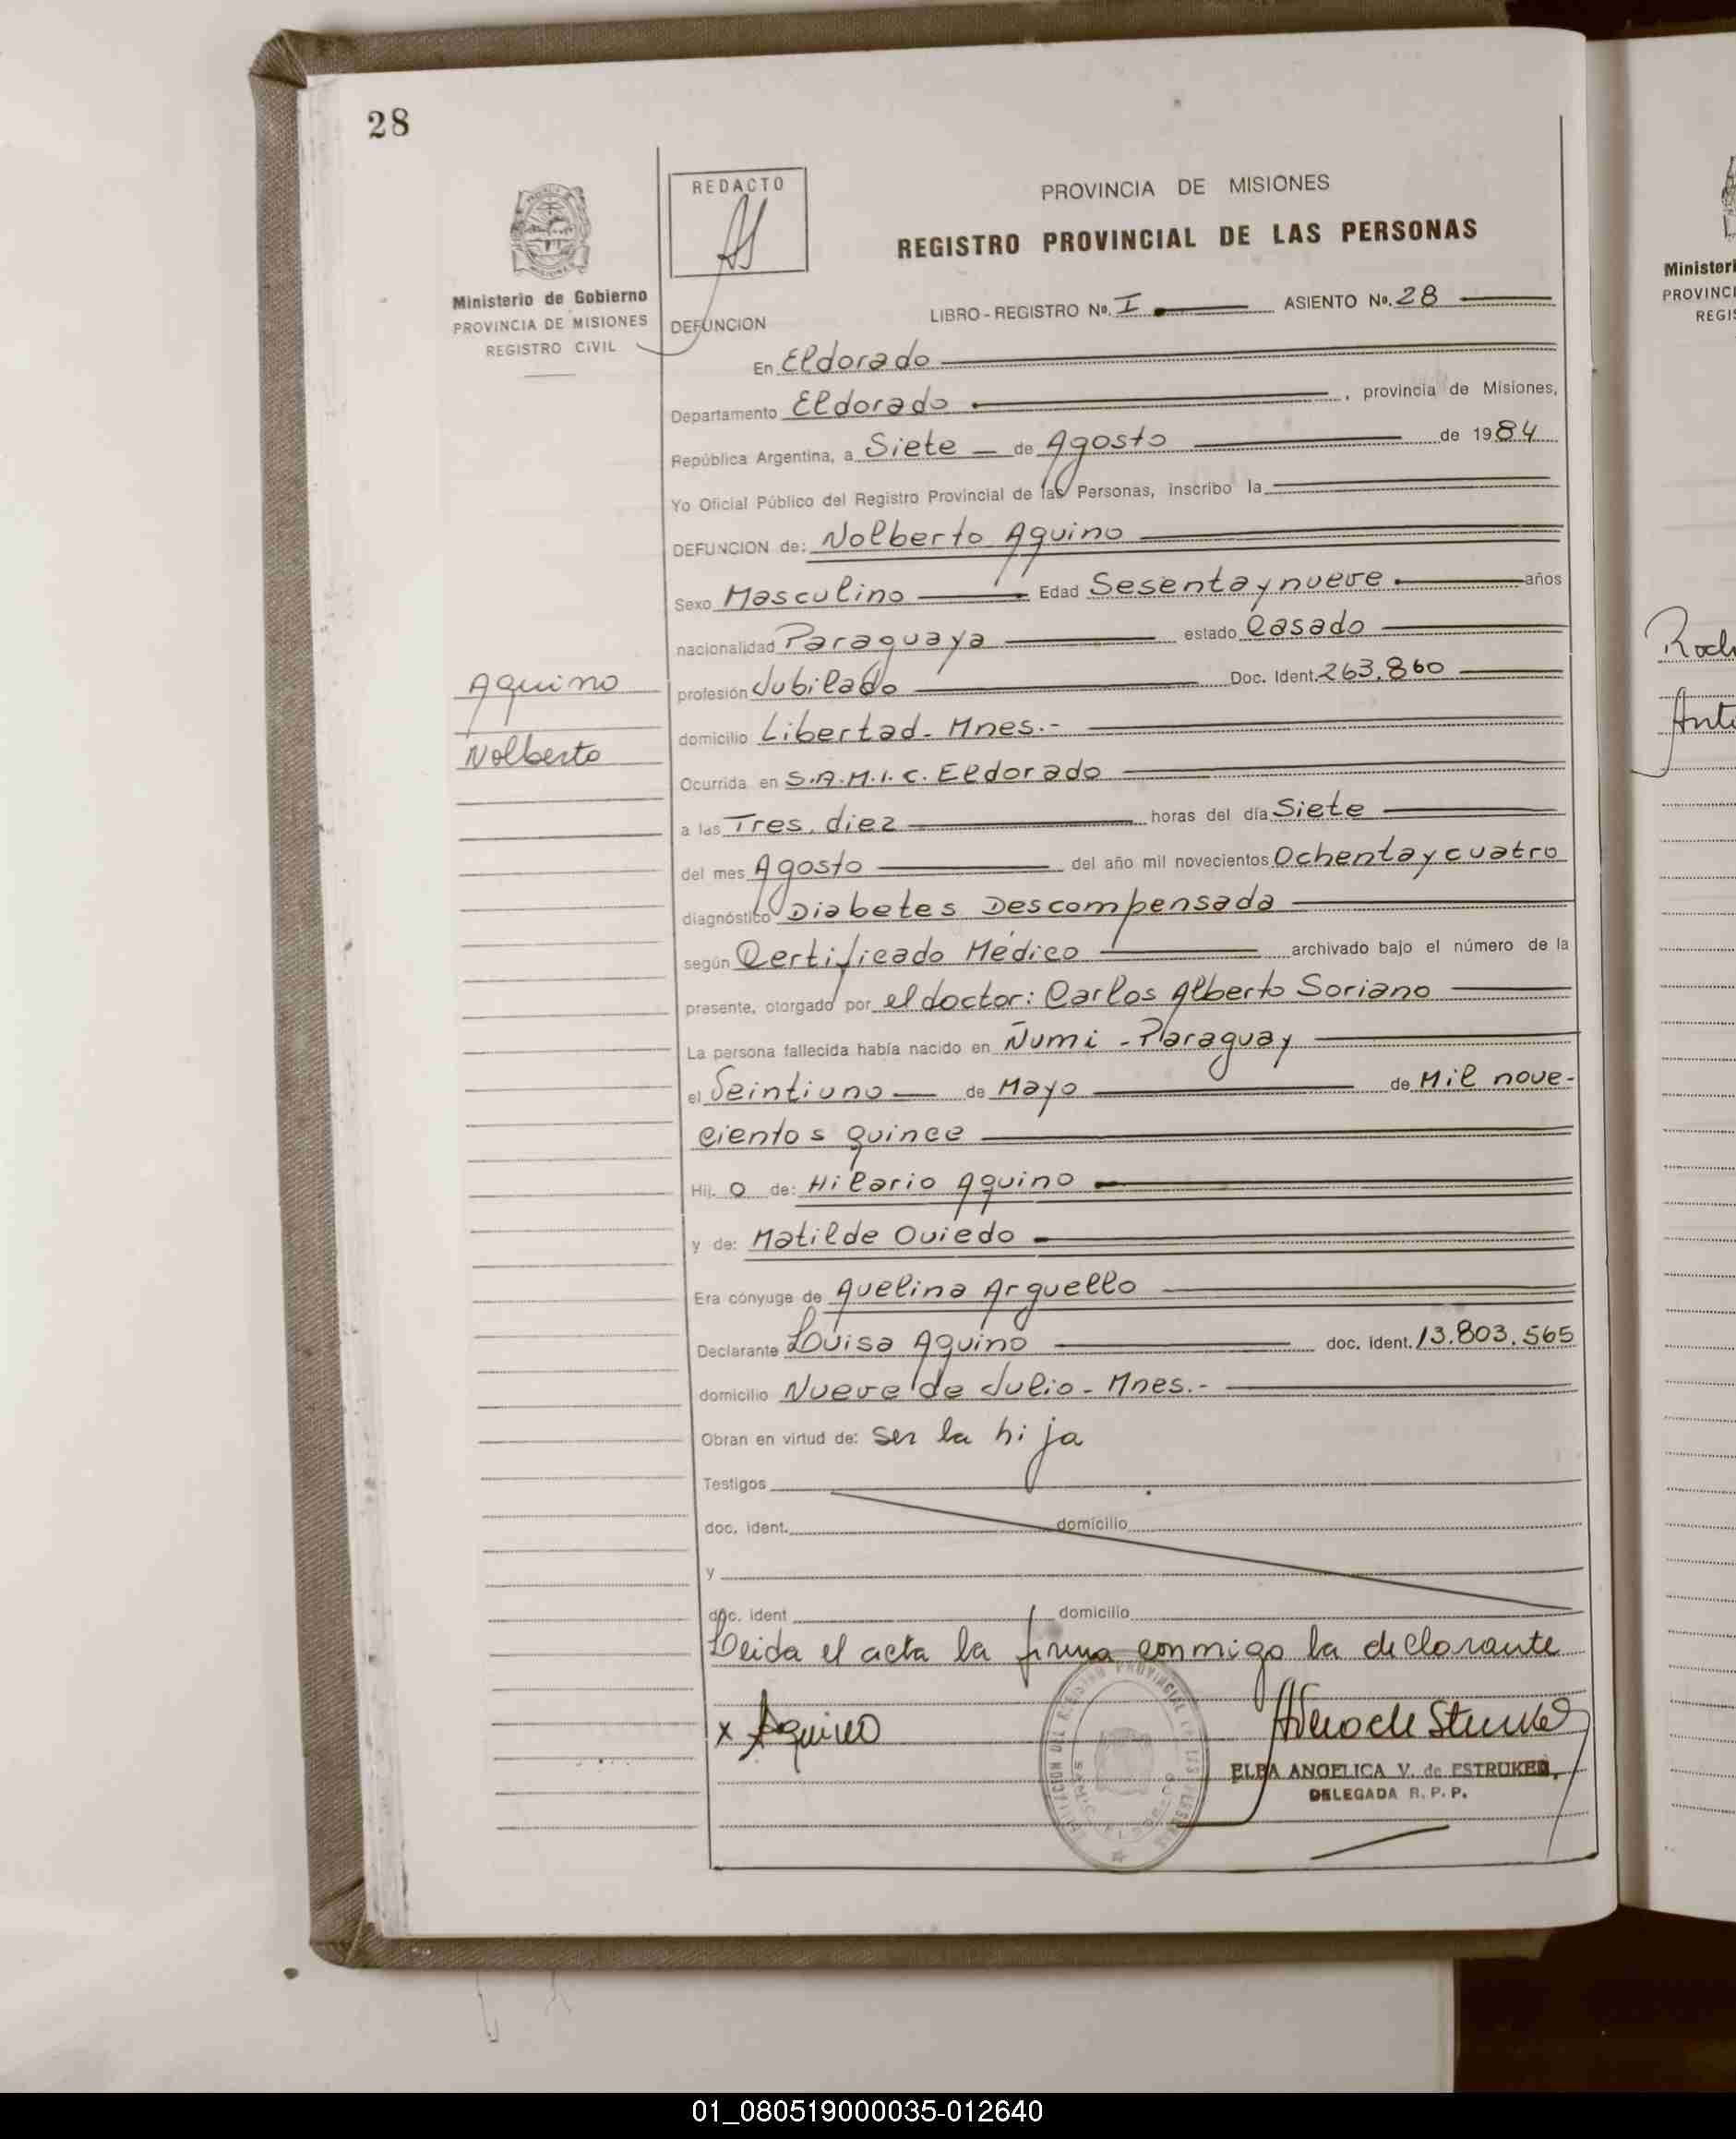 28
REDACTO
PROVINCIA DE MISIONES
REGISTRO PROVINCIAL DE LAS PERSONAS
Ministerio de Gobierno
PROVINCIA DE MISIONES
REGISTRO CIVIL
LIBRO-REGISTRO No. I ASIENTO No. 28
DEFUNCION
En Eldorado
Departamento Eldorado , provincia de Misiones,
República Argentina, a Siete de Agosto de 1984
Yo Oficial Público del Registro Provincial de las Personas, inscribo la
DEFUNCION de: Nolberto Aquino
Sexo Masculino Edad Sesenta y nueve años
nacionalidad Paraguaya estado Casado
Aquino
Nolberto
profesión Jubilado Doc. Ident. 263.860
domicilio Libertad - Mnes.-
Ocurrida en S.A.M.I.C. Eldorado
a las Tres, diez horas del día Siete
del mes Agosto del año mil novecientos Ochenta y cuatro
diagnóstico Diabetes Descompensada
según Certificado Médico archivado bajo el número de la
presente, otorgado por el doctor: Carlos Alberto Soriano
La persona fallecida había nacido en Ñumi - Paraguay
el Veintiuno de Mayo de Mil nove-
cientos quince
Hij. o de: Hilario Aquino
y de: Matilde Oviedo
Era cónyuge de Avelina Arguello
Declarante Luisa Aquino doc. ident. 13.803.565
domicilio Nueve de Julio - Mnes.-
Obran en virtud de: ser la hija
Testigos
doc. ident. domicilio
y
doc. ident domicilio
Leida el acta la firma conmigo la declarante
x Aquino
ELBA ANGELICA V. de ESTRUKEL
DELEGADA R. P. P.
Ministeri
PROVINCI
REGIS
01_080519000035-012640